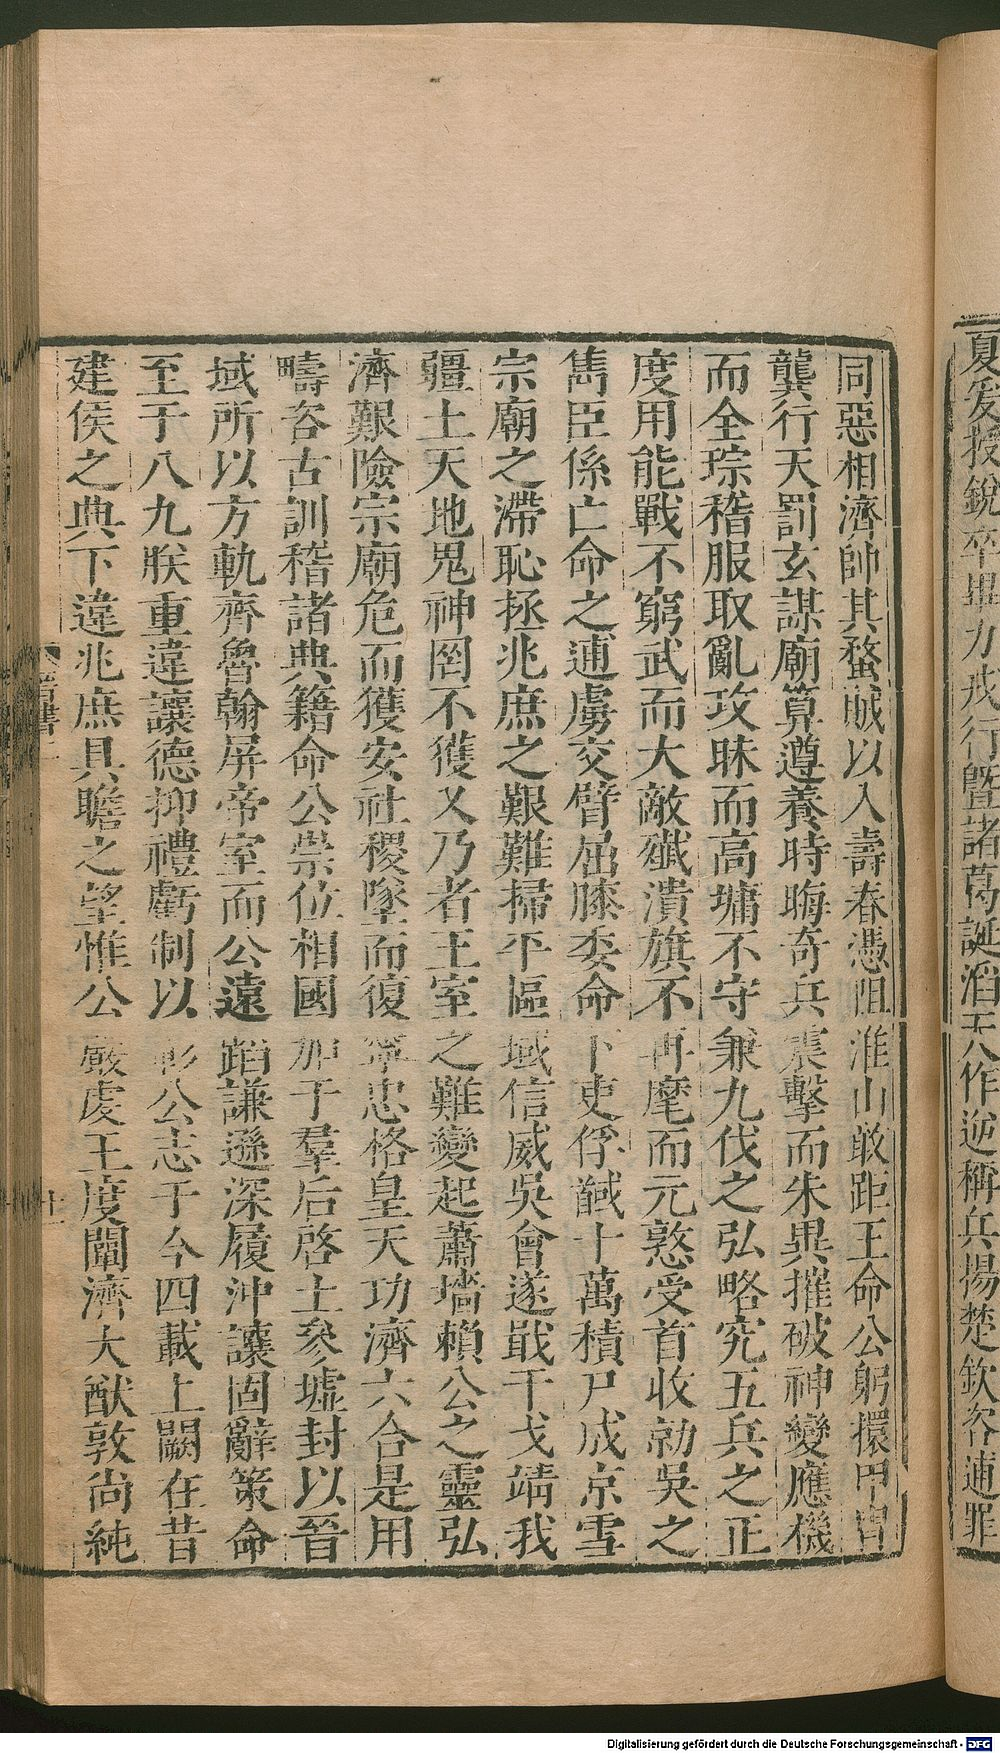 夏爰授銳卒畢力戎行暨諸葛誕滔天作逆稱兵揚楚欽咨逋罪
同惡相濟帥其蝥賊以入壽春憑阻淮山敢距王命公躬擐甲冑
龔行天罰玄謀廟算遵養時晦奇兵震擊而朱異摧破神變應機
而全琮稽服取亂攻昧而高墉不守兼九伐之弘略究五兵之正
度用能戰不窮武而大敵殲潰旗不再麾而元憝受首收勍吳之
雋臣係亡命之逋虜交臂屈膝委命下吏俘馘十萬積尸成京雪
宗廟之滯恥拯兆庶之艱難掃平區域信威吳會遂戢干戈靖我
疆土天地鬼神罔不獲乂乃者王室之難變起蕭墻賴公之靈弘
濟艱險宗廟危而獲安社稷墜而復寧忠格皇天功濟六合是用
疇咨古訓稽諸典籍命公崇位相國加于羣后啓土參墟封以晉
域所以方軌齊魯翰屏帝室而公遠蹈謙遜深履沖讓固辭策命
至于八九朕重違讓德抑禮虧制以彰公志于今四載上闕在昔
建侯之典下違兆庶具瞻之望惟公嚴虔王度闡濟大猷敦尚純
晉書二
十一
Digitalisierung gefördert durch die Deutsche Forschungsgemeinschaft - DFG